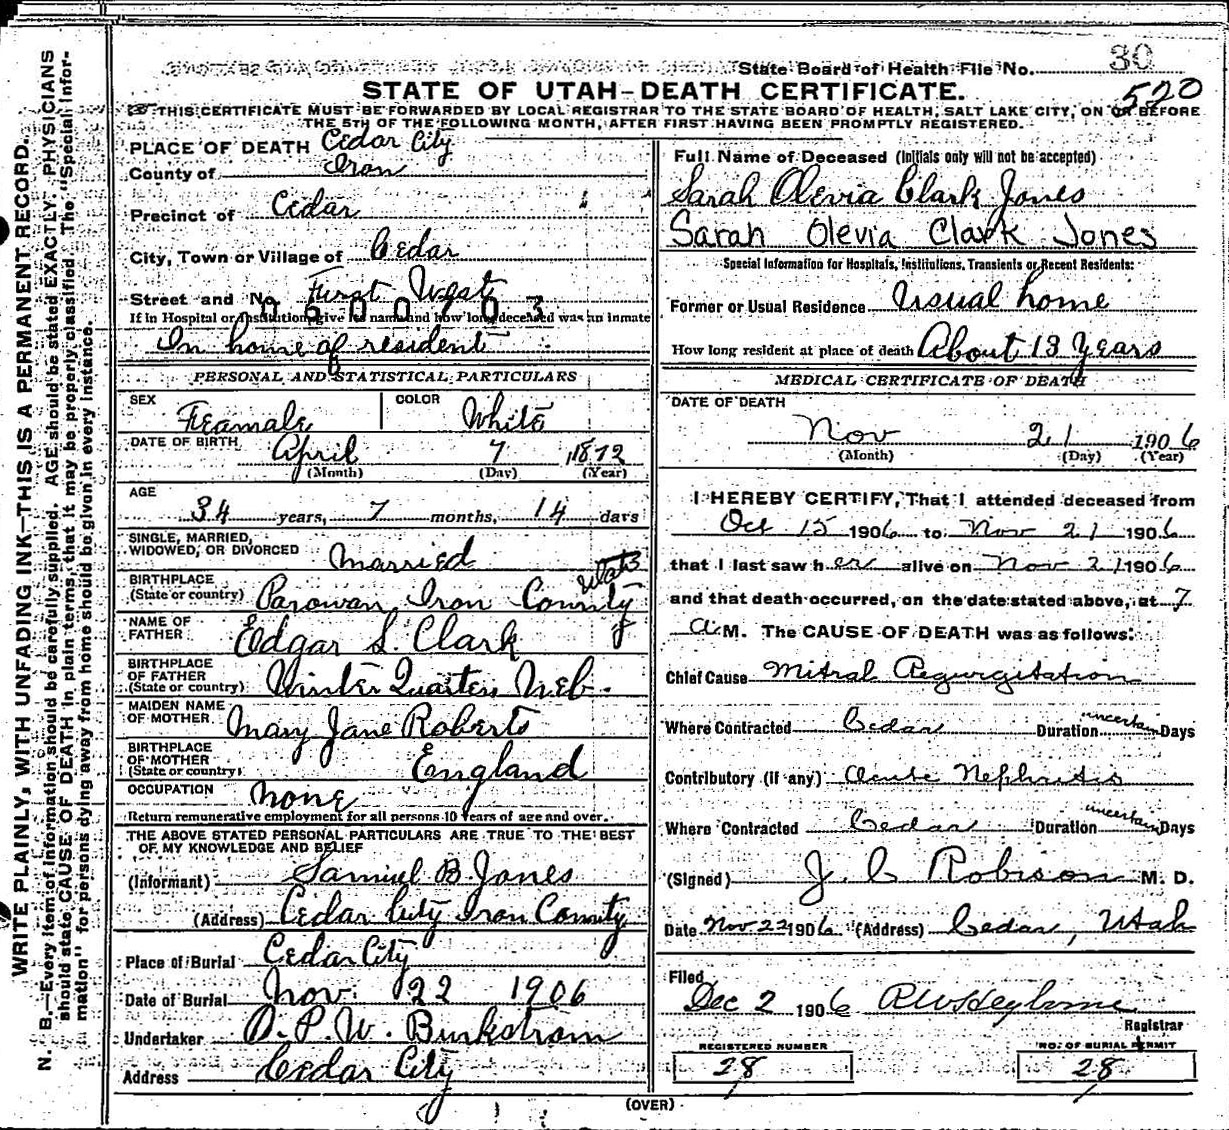 State Board of Health File No. 30
STATE OF UTAH—DEATH CERTIFICATE.
520
THIS CERTIFICATE MUST BE FORWARDED BY LOCAL REGISTRAR TO THE STATE BOARD OF HEALTH, SALT LAKE CITY, ON OR BEFORE
THE 5TH OF THE FOLLOWING MONTH, AFTER FIRST HAVING BEEN PROMPTLY REGISTERED.
WRITE PLAINLY, WITH UNFADING INK—THIS IS A PERMANENT RECORD.
N. B.—Every item of information should be carefully supplied. AGE should be stated EXACTLY. PHYSICIANS
should state CAUSE OF DEATH in plain terms, that it may be properly classified. The "Special Infor-
mation" for persons dying away from home should be given in every instance.
PLACE OF DEATH Cedar City
County of Iron
Precinct of Cedar
City, Town or Village of Cedar
Street and No. First West
If in Hospital or Institution, give its name and how long deceased was an inmate
In home of resident
PERSONAL AND STATISTICAL PARTICULARS
SEX Feamale COLOR White
DATE OF BIRTH April 7 1872
(Month) (Day) (Year)
AGE
34 years, 7 months, 14 days
SINGLE, MARRIED,
WIDOWED, OR DIVORCED Married
BIRTHPLACE
(State or country) Parowan, Iron County Utah
NAME OF
FATHER Edgar S. Clark
BIRTHPLACE
OF FATHER
(State or country) Winter Quarters Neb.
MAIDEN NAME
OF MOTHER Mary Jane Roberts
BIRTHPLACE
OF MOTHER
(State or country) England
OCCUPATION None
Return remunerative employment for all persons 10 years of age and over.
THE ABOVE STATED PERSONAL PARTICULARS ARE TRUE TO THE BEST
OF MY KNOWLEDGE AND BELIEF
(Informant) Samuel B. Jones
(Address) Cedar City Iron County
Place of Burial Cedar City
Date of Burial Nov. 22 1906
Undertaker O. P. W. Burkstrom
Address Cedar City
Full Name of Deceased (Initials only will not be accepted)
Sarah Olevia Clark Jones
Sarah Olevia Clark Jones
Special Information for Hospitals, Institutions, Transients or Recent Residents:
Former or Usual Residence Usual home
How long resident at place of death About 13 Years
MEDICAL CERTIFICATE OF DEATH
DATE OF DEATH
Nov 21 1906
(Month) (Day) (Year)
I HEREBY CERTIFY, That I attended deceased from
Oct 15 1906 to Nov 21 1906
that I last saw her alive on Nov 21 1906
and that death occurred, on the date stated above, at 7
A M. The CAUSE OF DEATH was as follows:
Chief Cause Mitral Regurgitation
Where Contracted Cedar Duration uncertain Days
Contributory (if any) Acute Nephritis
Where Contracted Cedar Duration uncertain Days
(Signed) J. C. Robison M. D.
Date Nov 22 1906 (Address) Cedar, Utah
Filed
Dec 2 1906
Registrar
REGISTERED NUMBER
28
NO. OF BURIAL PERMIT
28
(OVER)